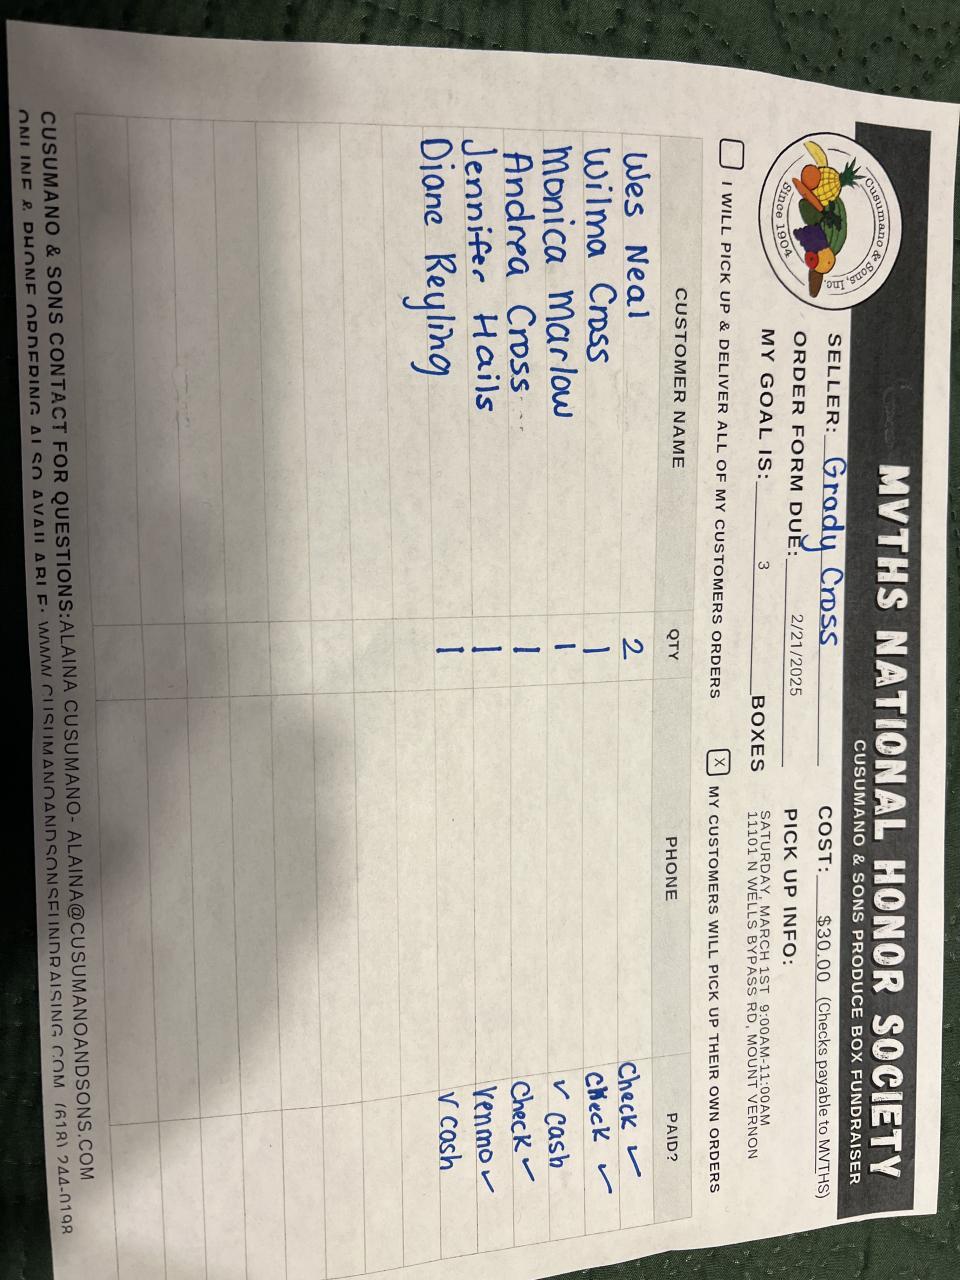 MVTHS NATIONAL HONOR SOCIETY
CUSUMANO & SONS PRODUCE BOX FUNDRAISER
Cusumano & Sons, Inc.
Since 1904
SELLER: Grady Cross
COST: $30.00 (Checks payable to MVTHS)
ORDER FORM DUE: 2/21/2025
PICK UP INFO:
MY GOAL IS: 3 BOXES
SATURDAY, MARCH 1ST 9:00AM-11:00AM
11101 N WELLS BYPASS RD, MOUNT VERNON
I WILL PICK UP & DELIVER ALL OF MY CUSTOMERS ORDERS
X MY CUSTOMERS WILL PICK UP THEIR OWN ORDERS
CUSTOMER NAME QTY PHONE PAID?
Wes Neal 2 Check ✓
Wilma Cross 1 Check ✓
Monica Marlow 1 ✓ cash
Andrea Cross 1 Check ✓
Jennifer Hails 1 Venmo ✓
Diane Reyling 1 ✓ cash
CUSUMANO & SONS CONTACT FOR QUESTIONS:ALAINA CUSUMANO- ALAINA@CUSUMANOANDSONS.COM
ONLINE & PHONE ORDERING ALSO AVAILABLE: WWW.CUSUMANOANDSONSFUNDRAISING.COM (618) 244-0198